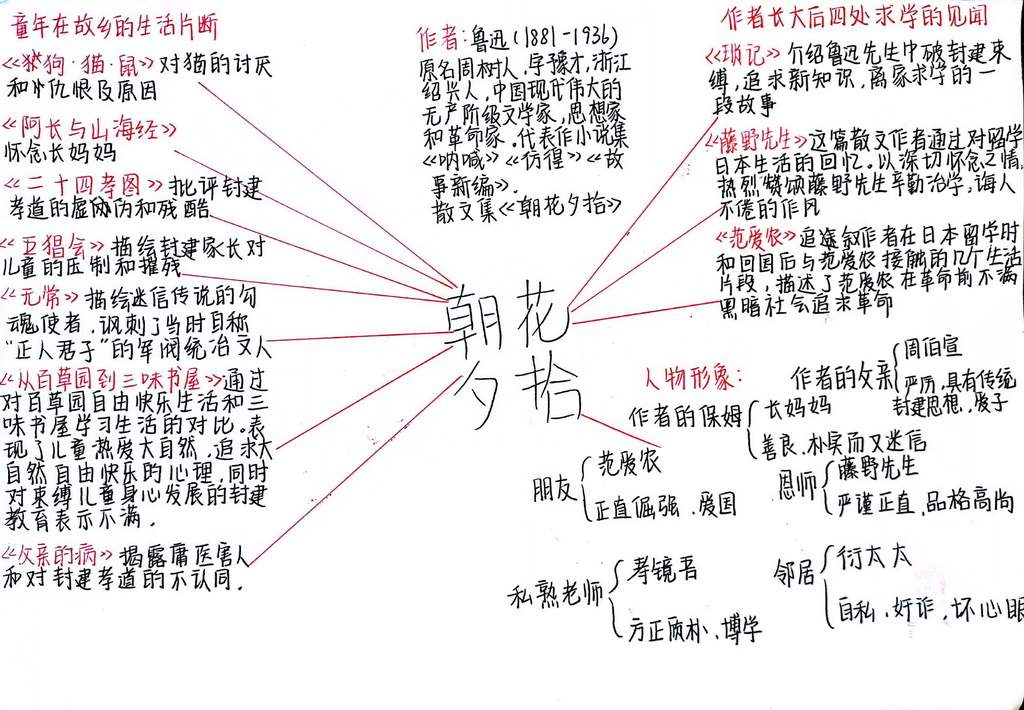 童年在故乡的生活片断
《狗·猫·鼠》对猫的讨厌
和仇恨及原因
《阿长与山海经》
怀念长妈妈
《二十四孝图》批评封建
孝道的虚伪和残酷
《五猖会》描绘封建家长对
儿童的压制和摧残
《无常》描绘迷信传说的勾
魂使者,讽刺了当时自称
“正人君子”的军阀统治文人
《从百草园到三味书屋》通过
对百草园自由快乐生活和三
味书屋学习生活的对比。表
现了儿童热爱大自然,追求大
自然自由快乐的心理,同时
对束缚儿童身心发展的封建
教育表示不满.
《父亲的病》揭露庸医害人
和对封建孝道的不认同.
作者:鲁迅(1881-1936)
原名周树人,字豫才,浙江
绍兴人,中国现代伟大的
无产阶级文学家,思想家
和革命家.代表作小说集
《呐喊》《彷徨》《故
事新编》.
散文集《朝花夕拾》
朝花
夕拾
作者长大后四处求学的见闻
《琐记》介绍鲁迅先生中破封建束
缚,追求新知识,离家求学的一
段故事
《藤野先生》这篇散文作者通过对留学
日本生活的回忆.以深切怀念之情,
热烈赞颂藤野先生辛勤治学,诲人
不倦的作风
《范爱农》追叙作者在日本留学时
和回国后与范爱农接触的几个生活
片段,描述了范爱农在革命前不满
黑暗社会追求革命
人物形象:
作者的父亲
周伯宣
严厉,具有传统
封建思想,爱子
作者的保姆
长妈妈
善良.朴实而又迷信
朋友
范爱农
正直倔强、爱国
恩师
藤野先生
严谨正直,品格高尚
私熟老师
寿镜吾
方正质朴、博学
邻居
衍太太
自私.奸诈,坏心眼